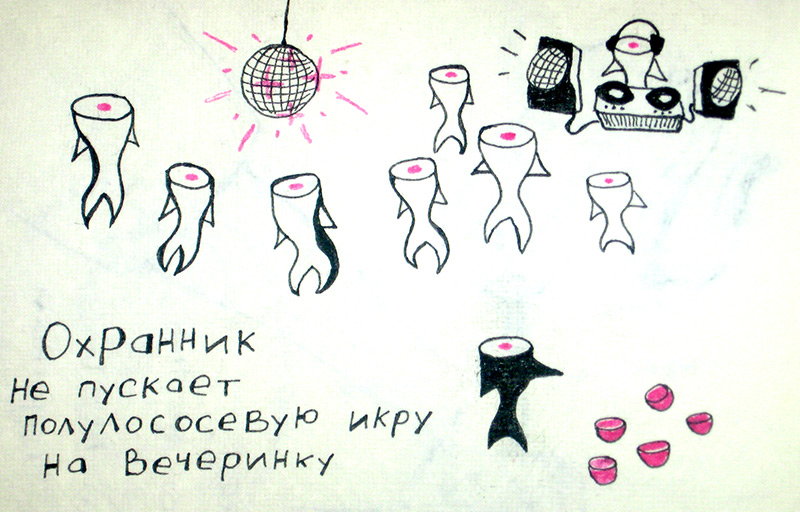 Охранник
не пускает
полулососевую икру
на вечеринку